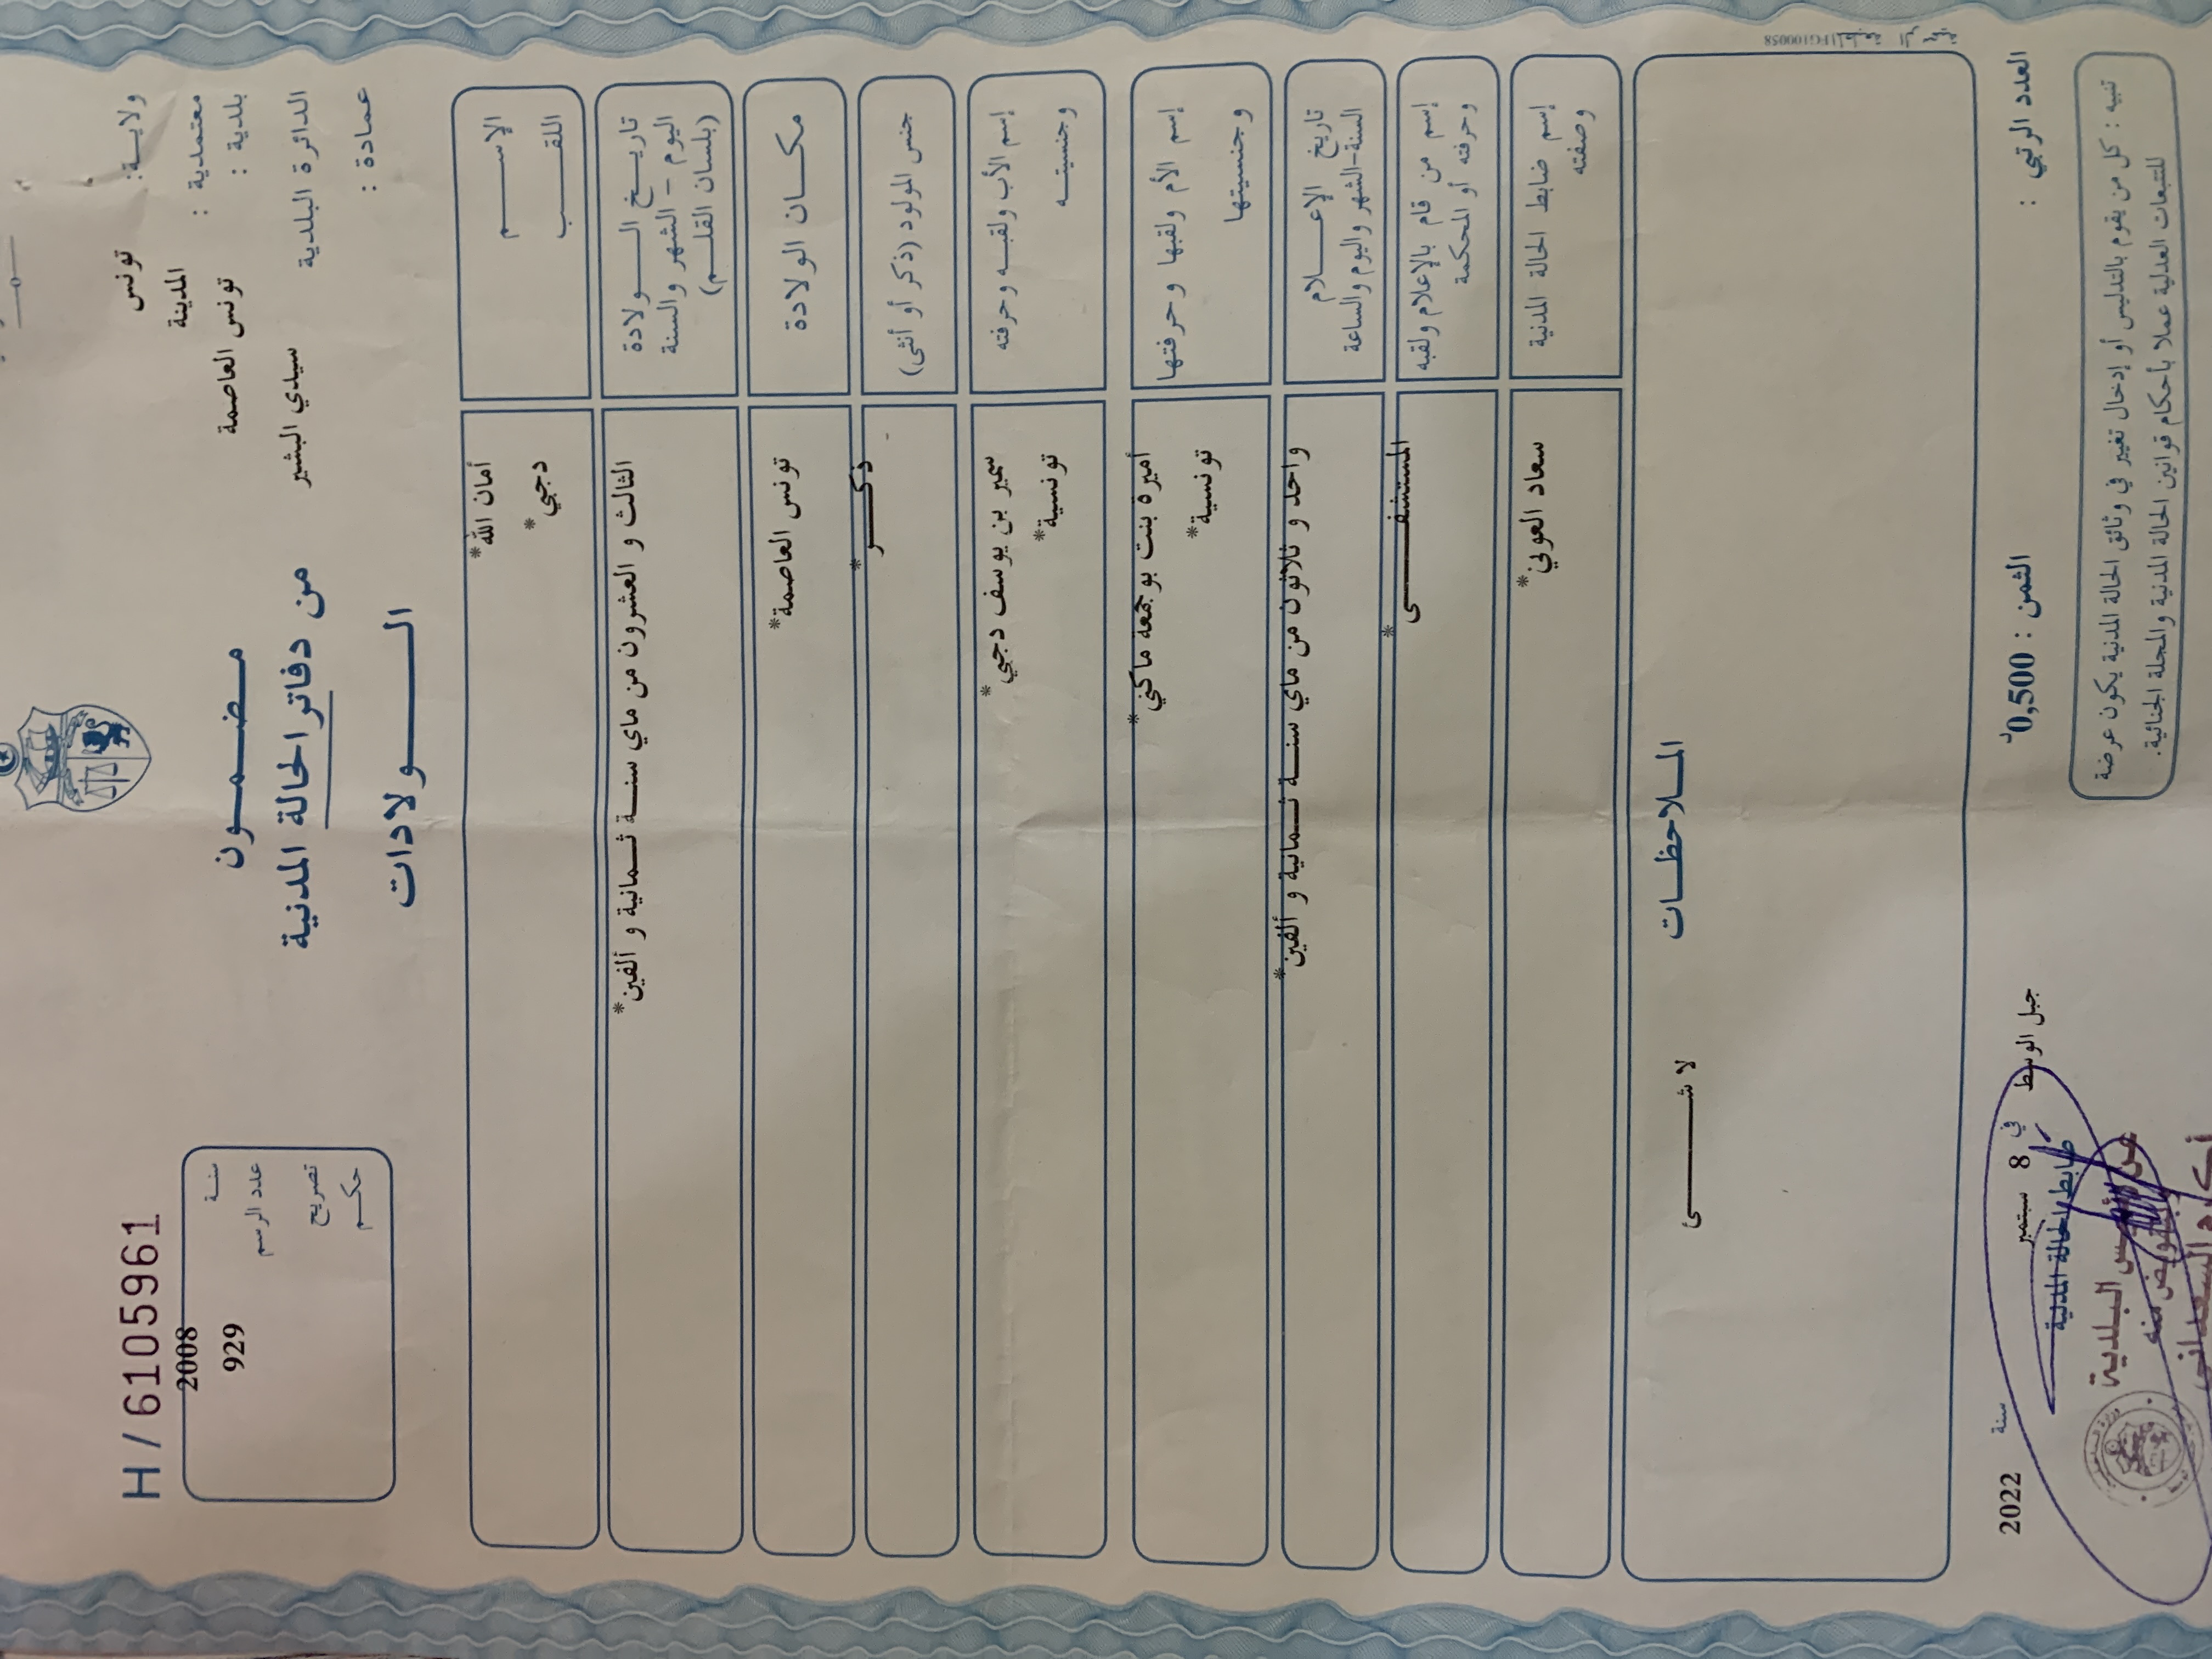 ولاية: تونس
معتمدية : المدينة
بلدية : تونس العاصمة
الدائرة البلدية سيدي البشير
عمادة :
مضمون
من دفاتر الحالة المدنية
الولادات
H / 6105961
سنة 2008
عدد الرسم 929
تصريح
حكم
الإسم أمان الله*
اللقب دجبي*
تاريخ الولادة الثالث و العشرون من ماي سنة ثمانية و ألفين*
اليوم - الشهر والسنة
(بلسان القلم)
مكان الولادة تونس العاصمة*
جنس المولود (ذكر أو أنثى) ذكر*
إسم الأب ولقبه وحرفته سمير بن يوسف دجبي*
وجنسيته تونسية*
إسم الأم ولقبها وحرفتها أميرة بنت بوجمعة ماكني*
وجنسيتها تونسية*
تاريخ الإعلام واحد و ثلاثون من ماي سنة ثمانية و ألفين*
السنة-الشهر واليوم والساعة
إسم من قام بالإعلام ولقبه المستشفى*
وحرفته أو المحكمة
إسم ضابط الحالة المدنية سعاد العوني*
وصفته
الملاحظات
لا شيء
العدد الرتبي :
الثمن : 0,500د
جبل الوسط في 8 سبتمبر سنة 2022
ضابط الحالة المدنية
عن رئيس البلدية
وبتفويض منه
السعداني
تنبيه : كل من يقوم بالتدليس أو إدخال تغيير في وثائق الحالة المدنية يكون عرضة
للتتبعات العدلية عملا بأحكام قوانين الحالة المدنية والمجلة الجنائية.